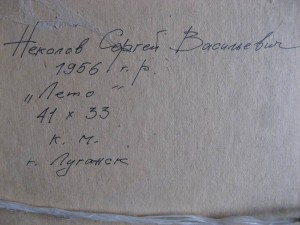 Неколов Сергей Васильевич
1956 г.р.
„Лето"
41 х 33
к. м.
г. Луганск